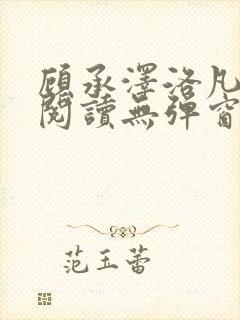 顧承澤洛凡
閱讀無彈窗
范玉蕾